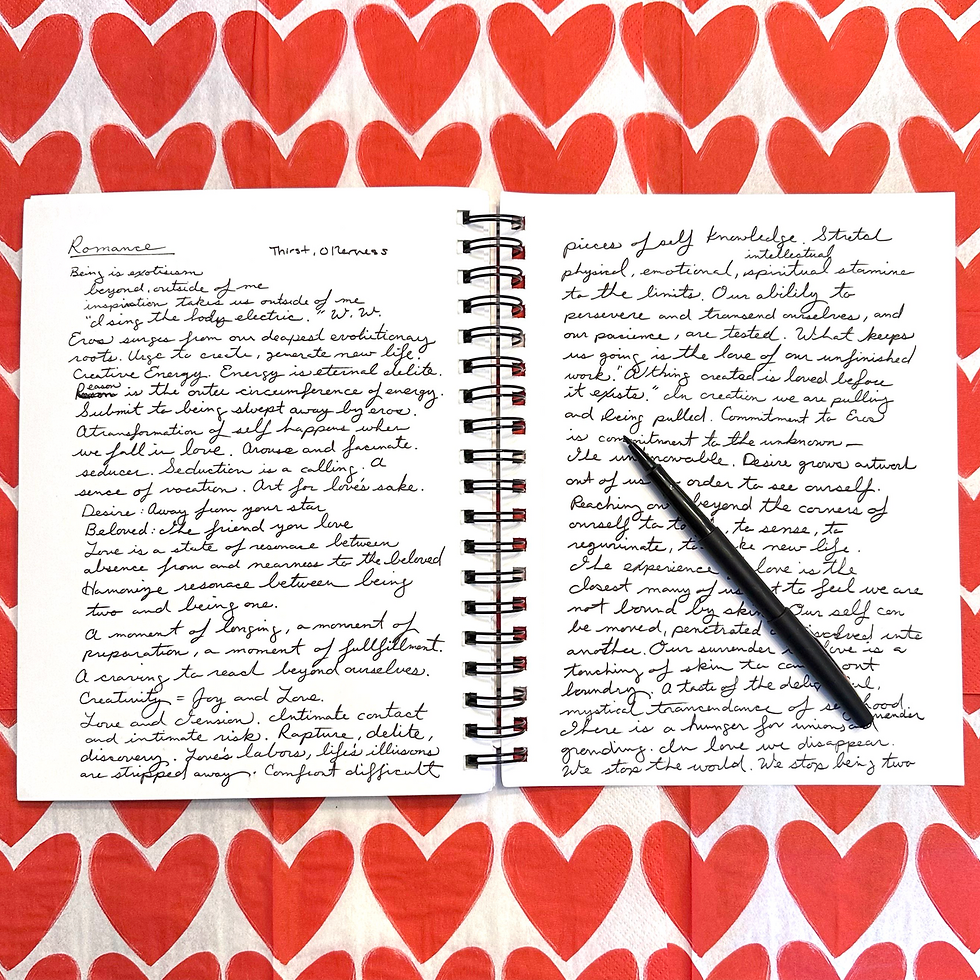 Romance Thirst, Otherness
Being is exoticism
beyond, outside of me
inspiration takes us outside of me
"I sing the body electric." W. W.
Eros surges from our deapest evolutionary
roots. Urge to create, generate new life.
Creative Energy. Energy is eternal delite.
Reason is the outer circumference of energy.
Submit to being swept away by eros.
A transformation of self happens when
we fall in love. Arouse and facinate.
seducer. Seduction is a calling. A
sense of vocation. Art for love's sake.
Desire: Away from your star
Beloved: The friend you love
Love is a state of resonace between
absence from and nearness to the beloved
Harmonize resonace between being
two and being one.
A moment of longing, a moment of
preparation, a moment of fullfillment.
A craving to reach beyond ourselves.
Creativity = Joy and Love.
Love and tension. Intimate contact
and intimate risk. Rapture, delite,
discovery. Love's labors, life's illusions
are stripped away. Confront difficult
pieces of self knowledge. Stretch
intellectual
physical, emotional, spiritual stamine
to the limits. Our ability to
persevere and transend ourselves, and
our pacience, are tested. What keeps
us going is the love of our unfinished
work. "A thing created is loved before
it exists." In creation we are pulling
and being pulled. Commitment to Eros
is commitment to the unknown —
the unknowable. Desire grows outward
out of us order to see ourself.
Reaching beyond the corners of
ourself to to, to sense, to
new life.
The experience love is the
closest many of us to feel we are
not bound by skin Our self can
be moved, penetrated dissolved into
another. Our surrender love is a
touching of skin to out
boundry. A taste of the
mystical trancendance of selfhood.
There is a hunger for union
grounding. In love we disappear.
We stop the world. We stop being two